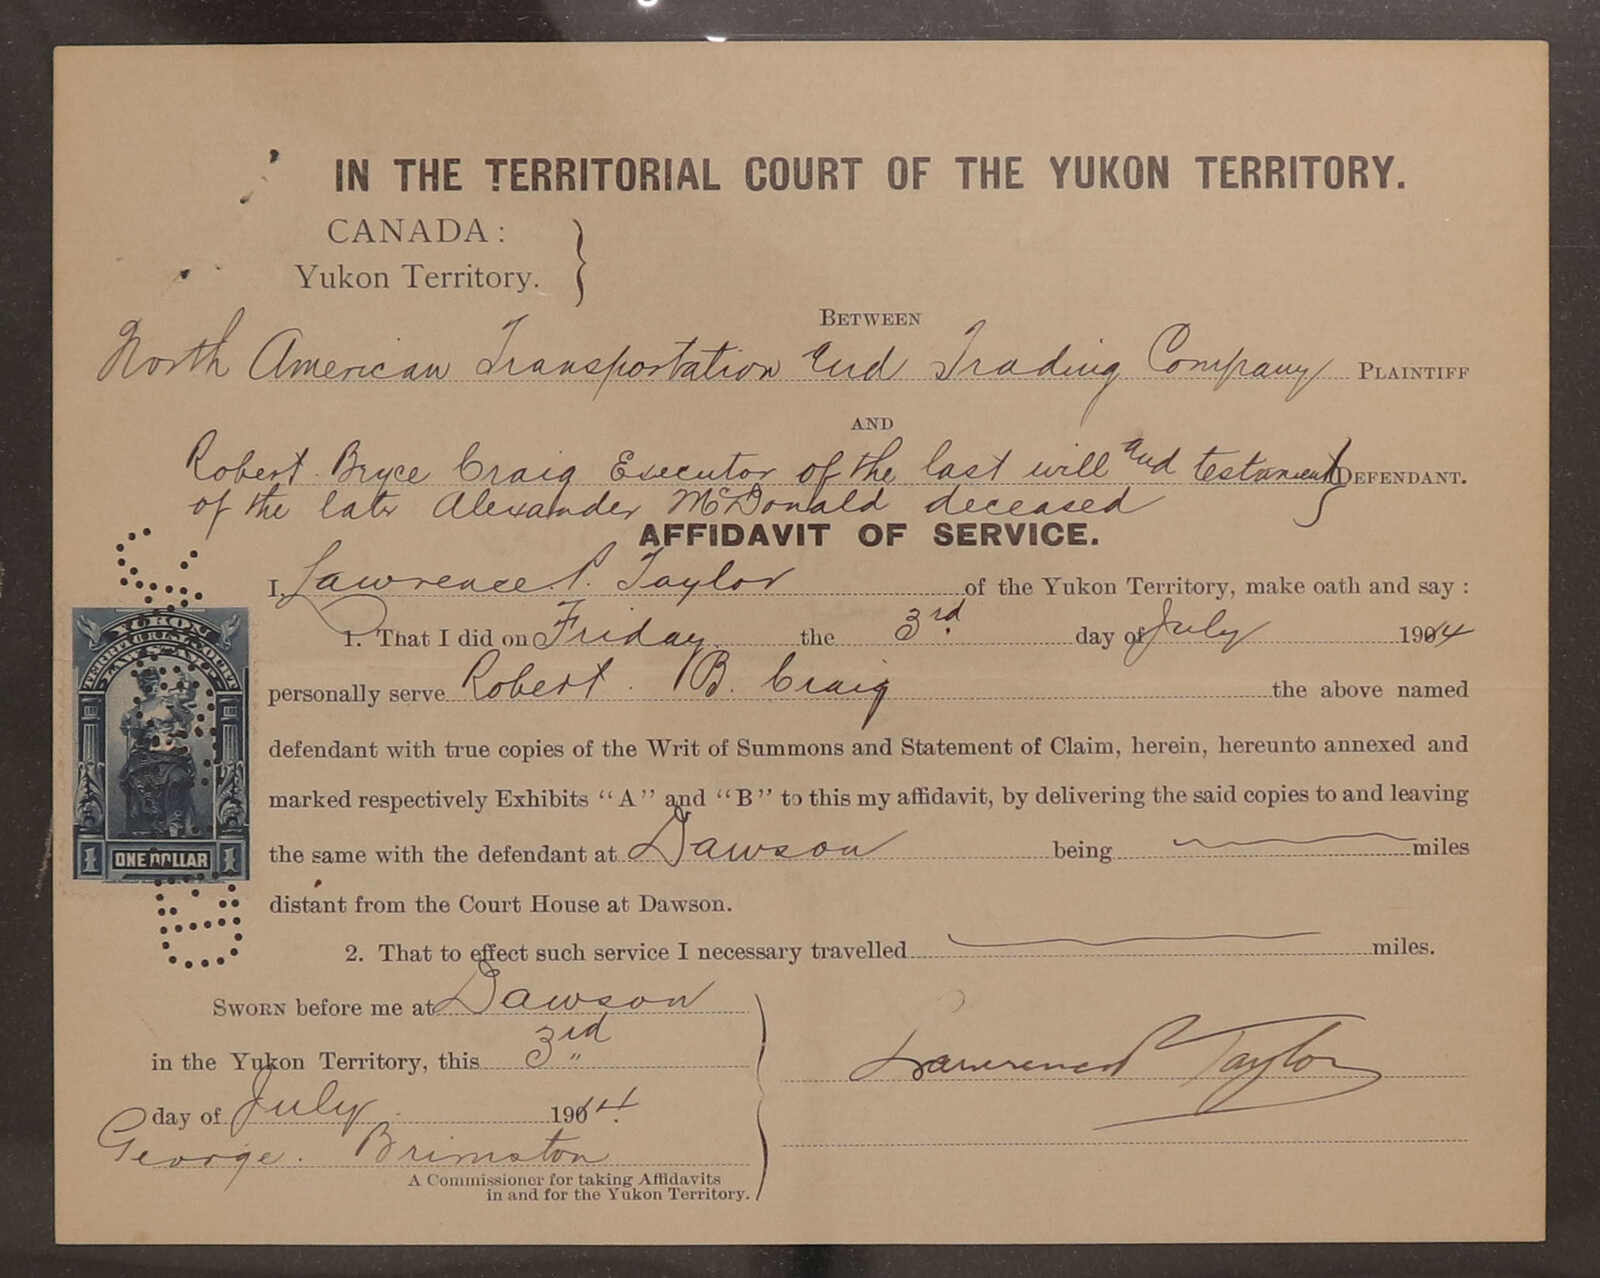 IN THE TERRITORIAL COURT OF THE YUKON TERRITORY.
CANADA:
Yukon Territory.
BETWEEN
North American Transportation and Trading Company PLAINTIFF
AND
Robert Bryce Craig Executor of the last will and testament DEFENDANT.
of the late Alexander McDonald deceased
AFFIDAVIT OF SERVICE.
I, Lawrence P. Taylor of the Yukon Territory, make oath and say:
1. That I did on Friday the 3rd day of July 1914
personally serve Robert B. Craig the above named
defendant with true copies of the Writ of Summons and Statement of Claim, herein, hereunto annexed and
marked respectively Exhibits "A" and "B" to this my affidavit, by delivering the said copies to and leaving
the same with the defendant at Dawson being miles
distant from the Court House at Dawson.
2. That to effect such service I necessary travelled miles.
SWORN before me at Dawson
in the Yukon Territory, this 3rd
day of July 1914.
George Brimston
A Commissioner for taking Affidavits
in and for the Yukon Territory.
Lawrence P Taylor
YUKON
TERRITORIAL COURT
LAW STAMP
1 ONE DOLLAR 1